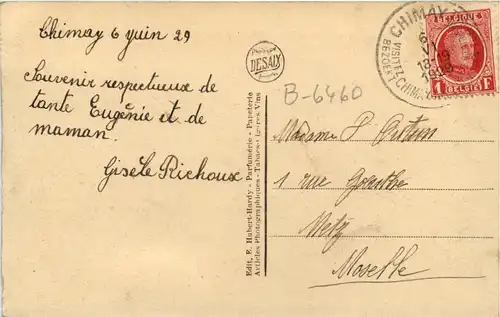 Chimay 6 juin 29
Souvenir respectueux de
tante Eugénie et de
maman.
Gisele Richoux
DESAIX
Edit. E. Hubert-Hardy - Parfumerie - Papeterie
Articles Photographiques - Tabacs-Cigares Vins
B-6460
CHIMAY
6
VI
1929
VISITEZ
BEZOEKT
CHIMAY
BELGIQUE
1 F
BELGIE
Madame P.
1 rue Goethe
Metz
Moselle